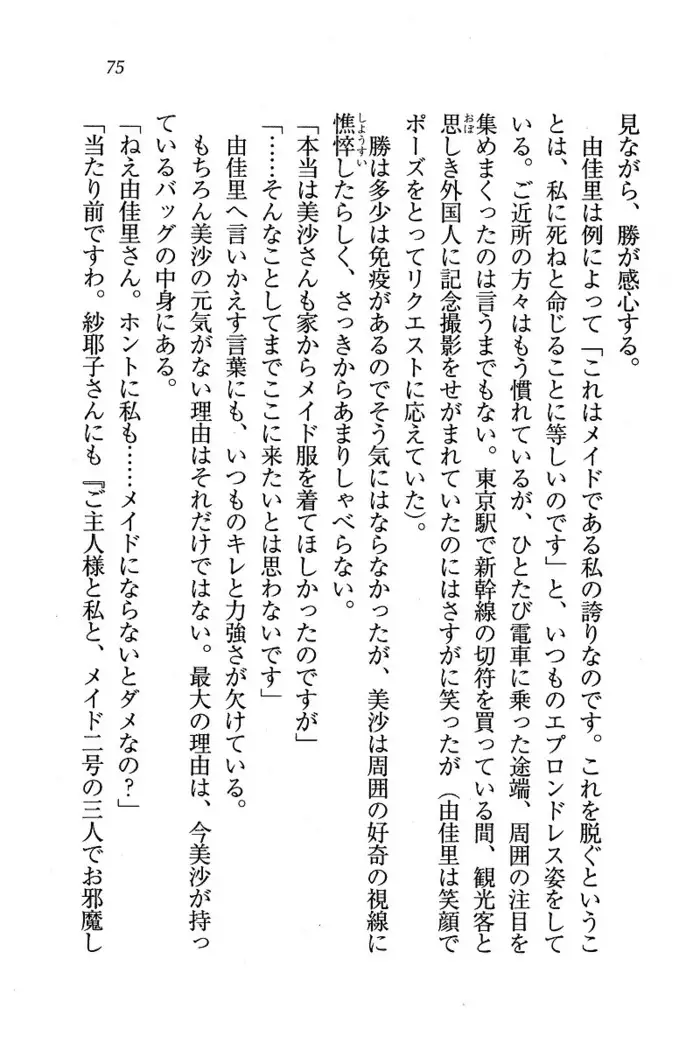 75
見ながら、勝が感心する。
由佳里は例によって「これはメイドである私の誇りなのです。これを脱ぐというこ
とは、私に死ねと命じることに等しいのです」と、いつものエプロンドレス姿をして
いる。ご近所の方々はもう慣れているが、ひとたび電車に乗った途端、周囲の注目を
集めまくったのは言うまでもない。東京駅で新幹線の切符を買っている間、観光客と
思しき外国人に記念撮影をせがまれていたのにはさすがに笑ったが（由佳里は笑顔で
おぼ
ポーズをとってリクエストに応えていた）。
勝は多少は免疫があるのでそう気にはならなかったが、美沙は周囲の好奇の視線に
憔悴したらしく、さっきからあまりしゃべらない。
しようすい
「本当は美沙さんも家からメイド服を着てほしかったのですが」
「……そんなことしてまでここに来たいとは思わないです」
由佳里へ言いかえす言葉にも、いつものキレと力強さが欠けている。
もちろん美沙の元気がない理由はそれだけではない。最大の理由は、今美沙が持っ
ているバッグの中身にある。
「ねえ由佳里さん。ホントに私も……メイドにならないとダメなの？」
「当たり前ですわ。紗耶子さんにも『ご主人様と私と、メイド二号の三人でお邪魔し